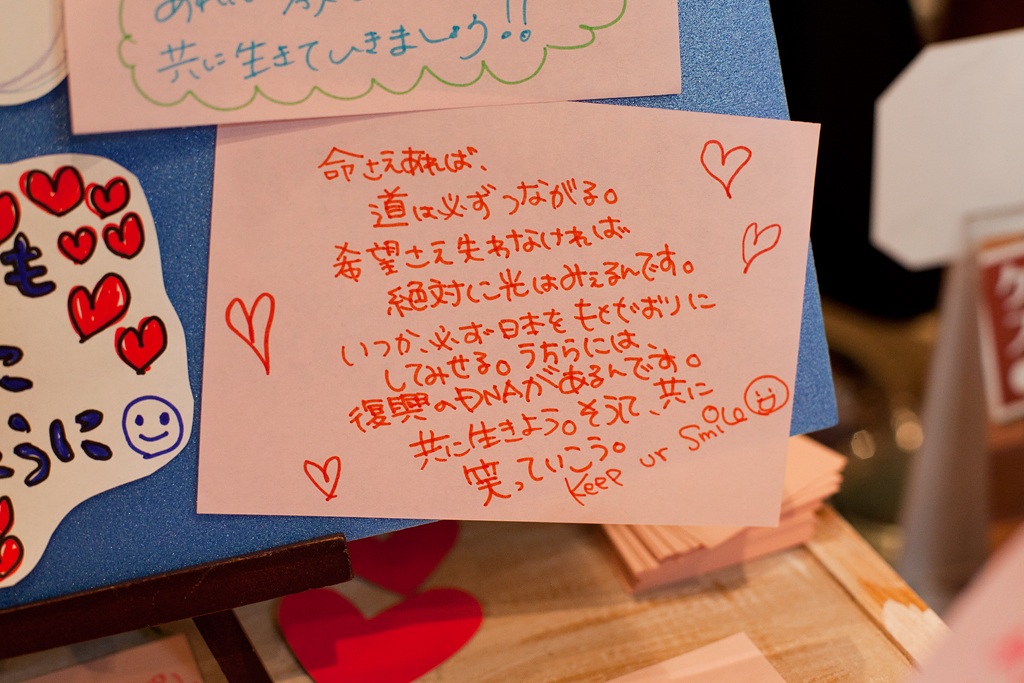 共に生きていきましょう!!
命さえあれば、
道は必ずつながる。
希望さえ失わなければ
絶対に光はみえるんです。
いつか、必ず日本をもとどおりに
してみせる。うちらには、
復興のDNAがあるんです。
共に生きよう。そうして、共に
笑っていこう。
Keep ur smile
も
ように